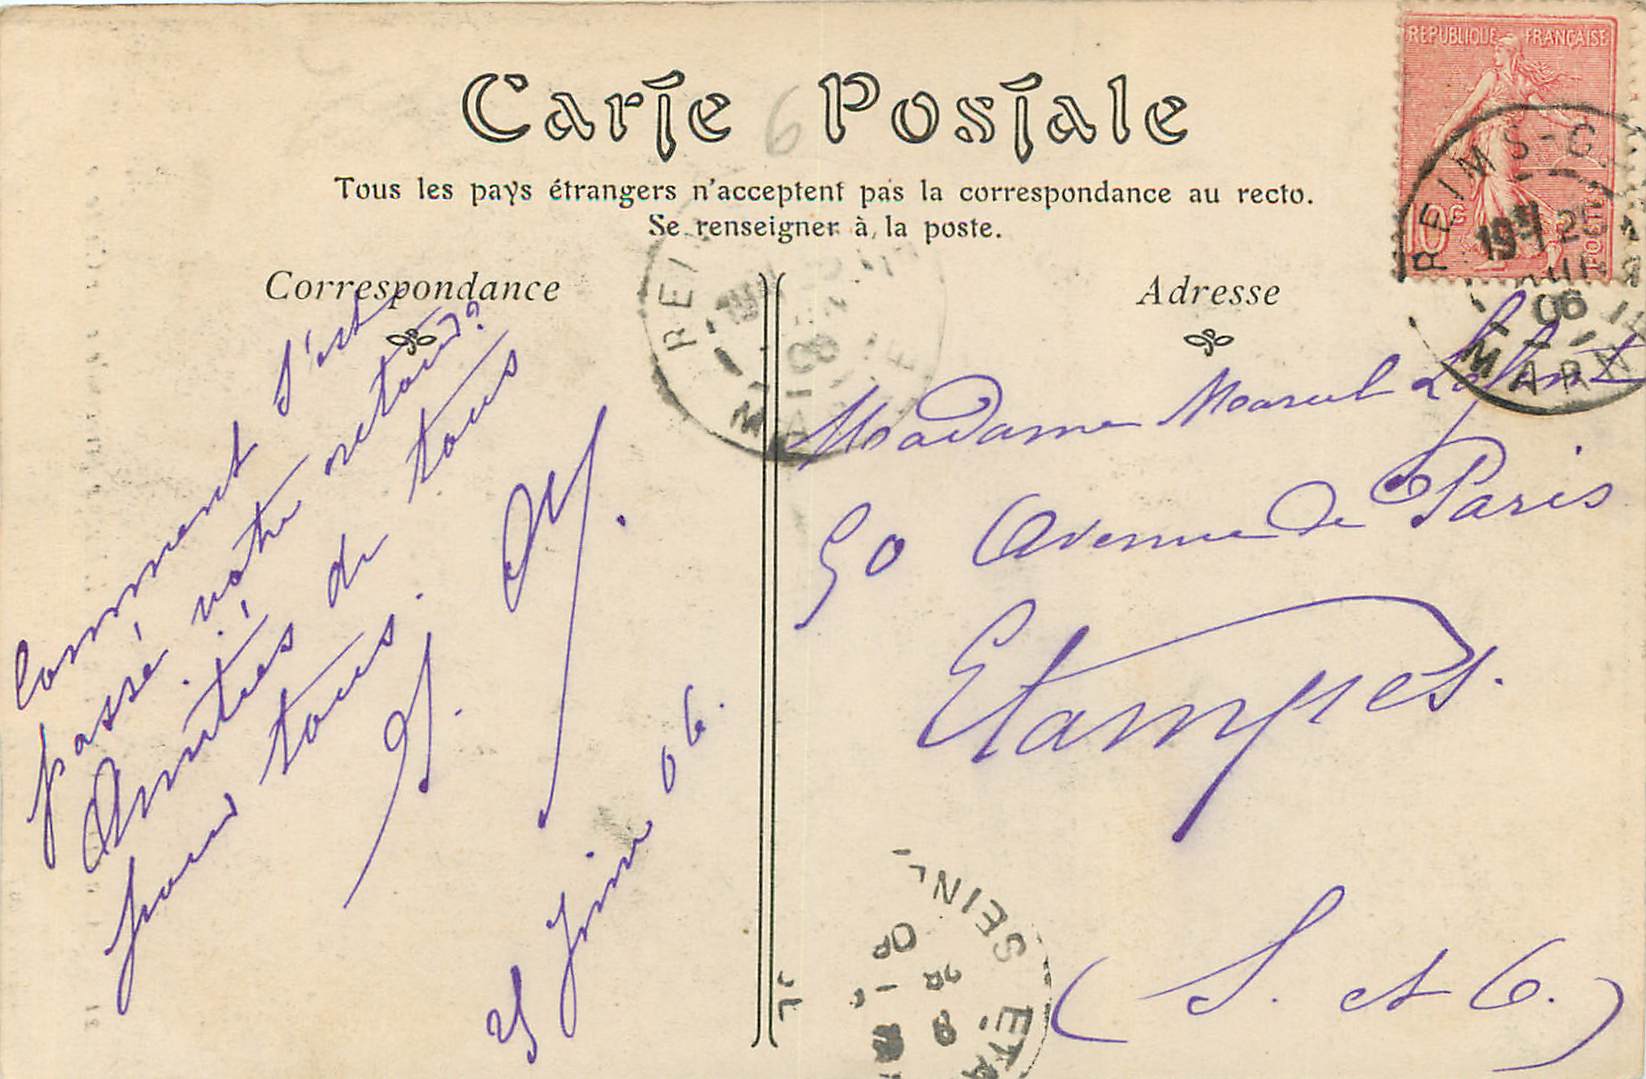 Carte Postale
6
Tous les pays étrangers n'acceptent pas la correspondance au recto.
Se renseigner à la poste.
Correspondance
Adresse
REPUBLIQUE FRANÇAISE
10 c
POSTES
REIMS-G
19
25
06
MARNE
REI
MA
Comment s'est
passé votre retour?
Amitiés de tous
pour tous.
25 Juin 06.
Madame Marcel
50 Avenue de Paris
Etampes.
(S. et O.)
SEINE
ÉTA